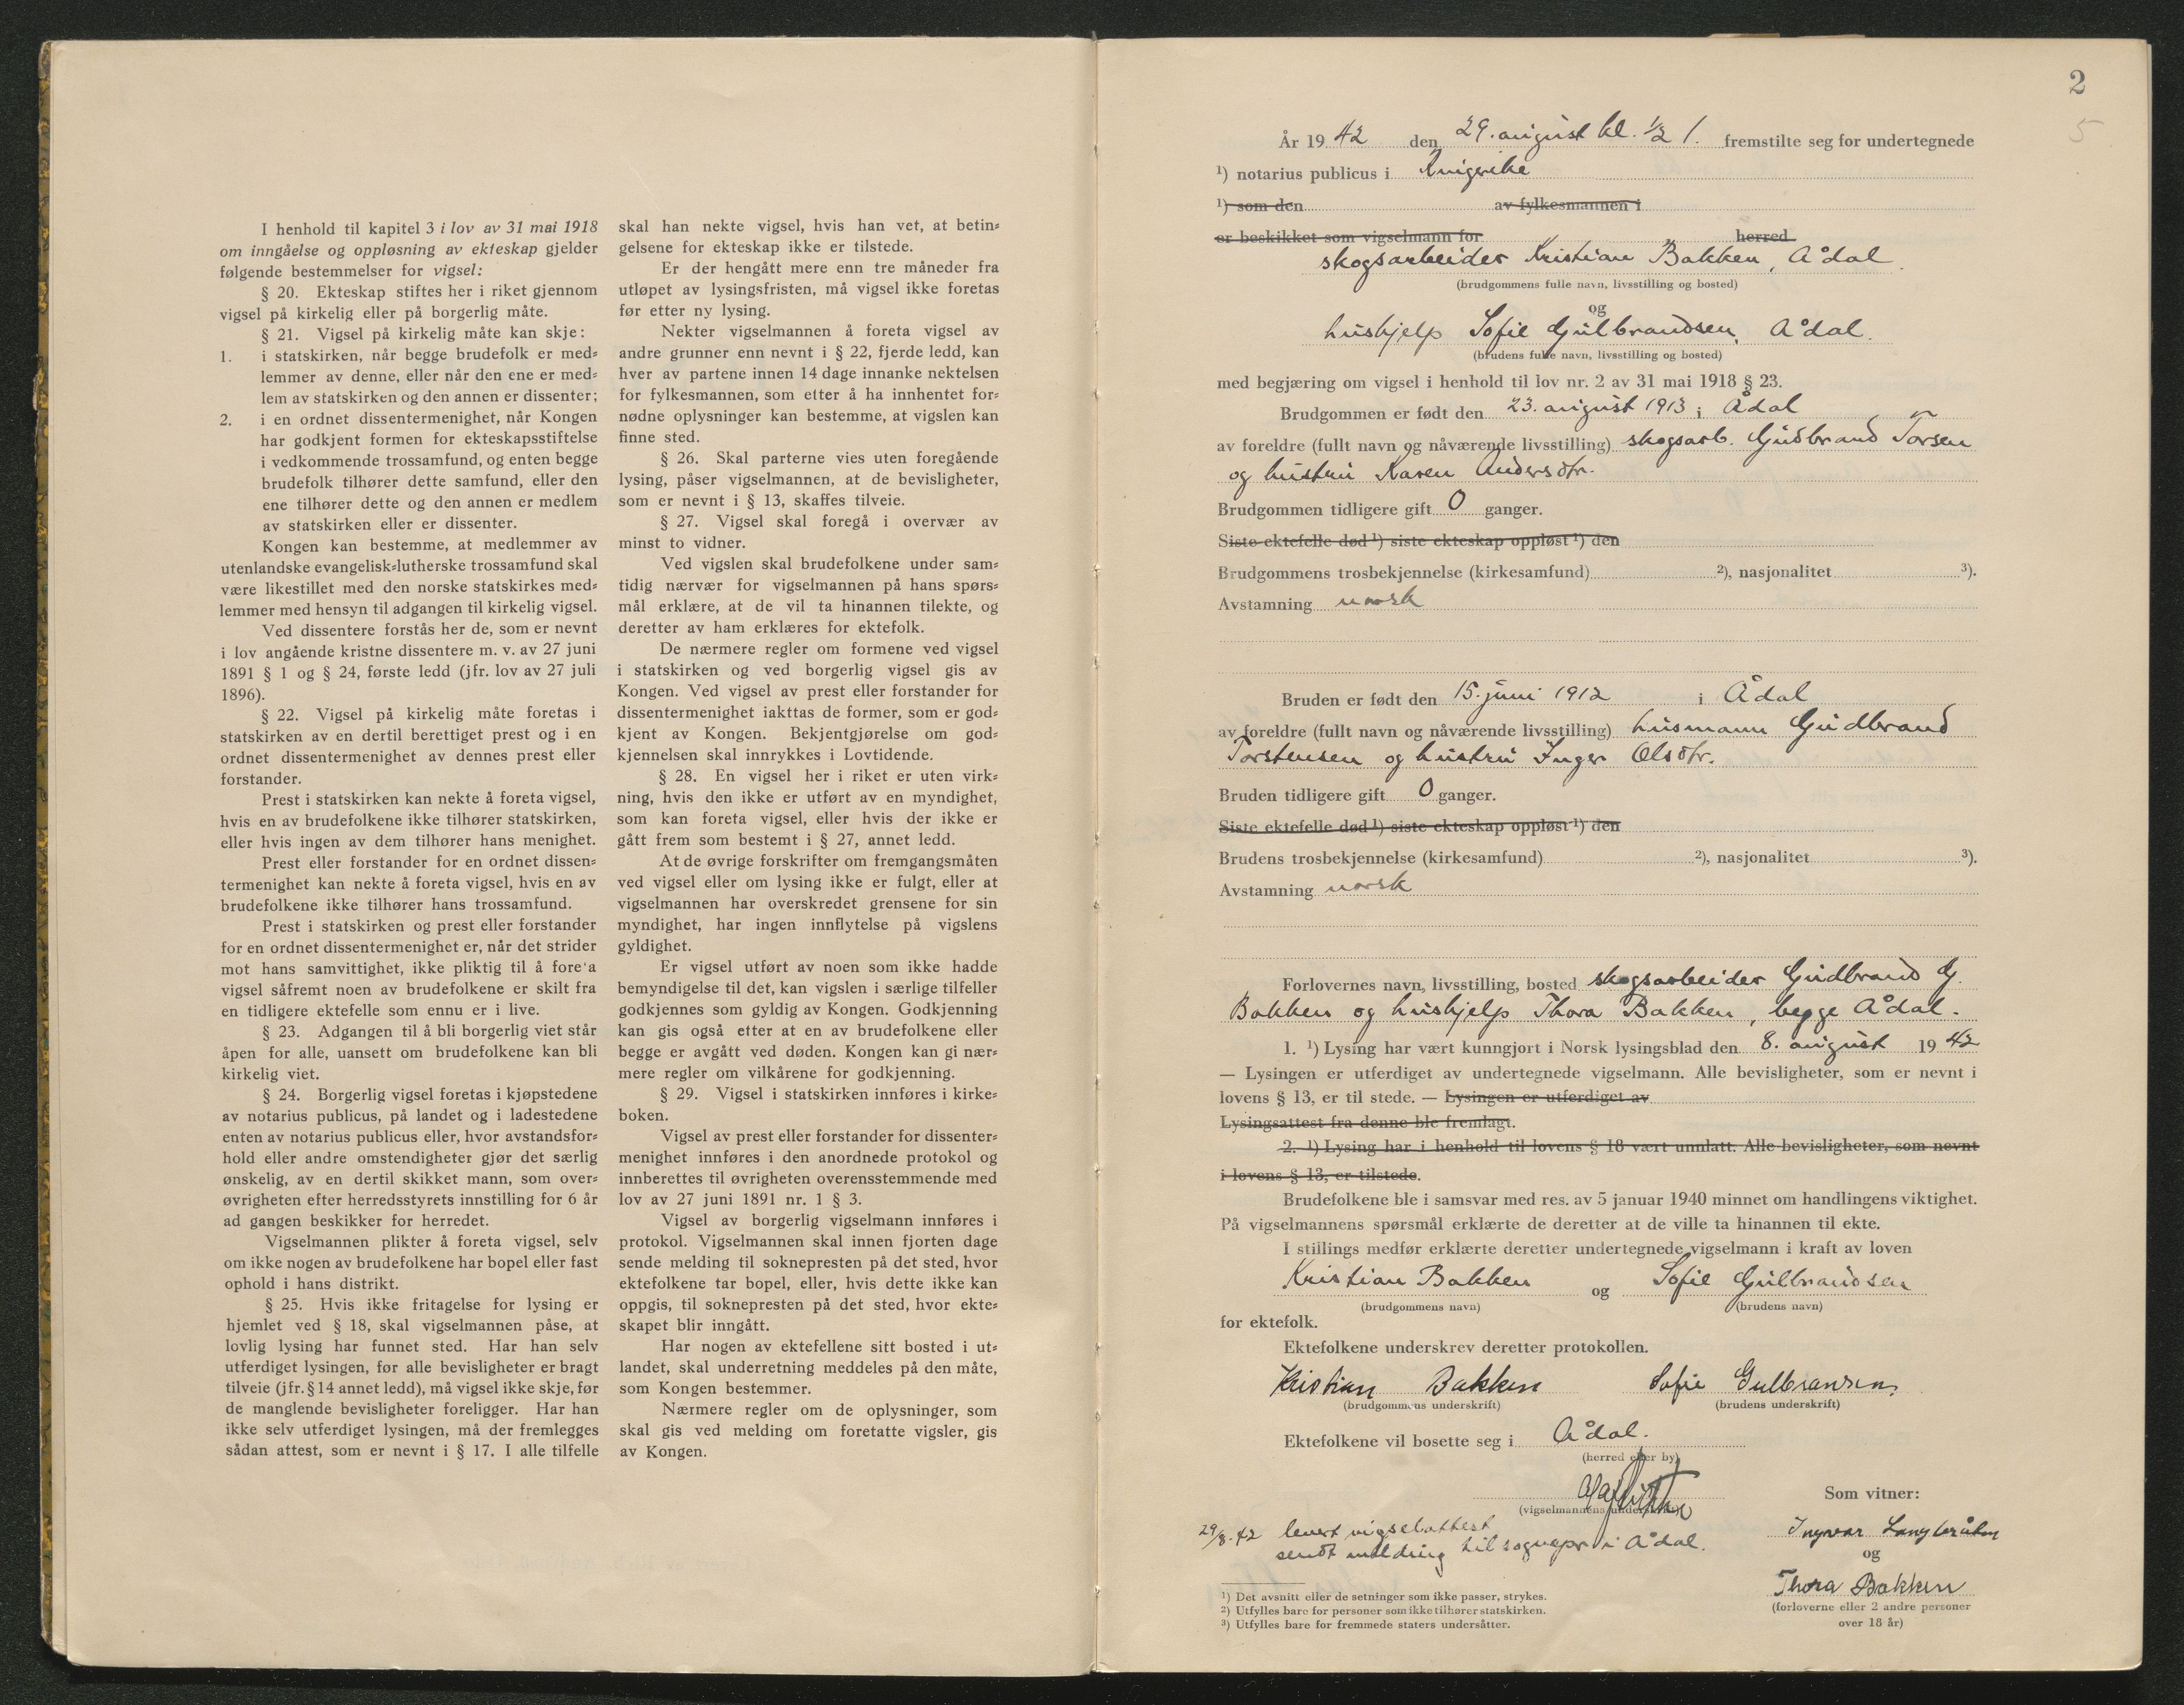 I henhold til kapitel 3 i lov av 31 mai 1918
om inngåelse og oppløsning av ekteskap gjelder
følgende bestemmelser for vigsel:
§ 20. Ekteskap stiftes her i riket gjennom
vigsel på kirkelig eller på borgerlig måte.
§ 21. Vigsel på kirkelig måte kan skje:
1. i statskirken, når begge brudefolk er med=
lemmer av denne, eller når den ene er med=
lem av statskirken og den annen er dissenter;
2. i en ordnet dissentermenighet, når Kongen
har godkjent formen for ekteskapsstiftelse
i vedkommende trossamfund, og enten begge
brudefolk tilhører dette samfund, eller den
ene tilhører dette og den annen er medlem
av statskirken eller er dissenter.
Kongen kan bestemme, at medlemmer av
utenlandske evangelisk=lutherske trossamfund skal
være likestillet med den norske statskirkes med=
lemmer med hensyn til adgangen til kirkelig vigsel.
Ved dissentere forstås her de, som er nevnt
i lov angående kristne dissentere m. v. av 27 juni
1891 § 1 og § 24, første ledd (jfr. lov av 27 juli
1896).
§ 22. Vigsel på kirkelig måte foretas i
statskirken av en dertil berettiget prest og i en
ordnet dissentermenighet av dennes prest eller
forstander.
Prest i statskirken kan nekte å foreta vigsel,
hvis en av brudefolkene ikke tilhører statskirken,
eller hvis ingen av dem tilhører hans menighet.
Prest eller forstander for en ordnet dissen=
termenighet kan nekte å foreta vigsel, hvis en av
brudefolkene ikke tilhører hans trossamfund.
Prest i statskirken og prest eller forstander
for en ordnet dissentermenighet er, når det strider
mot hans samvittighet, ikke pliktig til å fore'a
vigsel såfremt noen av brudefolkene er skilt fra
en tidligere ektefelle som ennu er i live.
§ 23. Adgangen til å bli borgerlig viet står
åpen for alle, uansett om brudefolkene kan bli
kirkelig viet.
§ 24. Borgerlig vigsel foretas i kjøpstedene
av notarius publicus, på landet og i ladestedene
enten av notarius publicus eller, hvor avstandsfor=
hold eller andre omstendigheter gjør det særlig
ønskelig, av en dertil skikket mann, som over=
øvrigheten efter herredsstyrets innstilling for 6 år
ad gangen beskikker for herredet.
Vigselmannen plikter å foreta vigsel, selv
om ikke nogen av brudefolkene har bopel eller fast
ophold i hans distrikt.
§ 25. Hvis ikke fritagelse for lysing er
hjemlet ved § 18, skal vigselmannen påse, at
lovlig lysing har funnet sted. Har han selv
utferdiget lysingen, før alle bevisligheter er bragt
tilveie (jfr. § 14 annet ledd), må vigsel ikke skje, før
de manglende bevisligheter foreligger. Har han
ikke selv utferdiget lysingen, må der fremlegges
sådan attest, som er nevnt i § 17. I alle tilfelle
skal han nekte vigsel, hvis han vet, at betin=
gelsene for ekteskap ikke er tilstede.
Er der hengått mere enn tre måneder fra
utløpet av lysingsfristen, må vigsel ikke foretas
før etter ny lysing.
Nekter vigselmannen å foreta vigsel av
andre grunner enn nevnt i § 22, fjerde ledd, kan
hver av partene innen 14 dage innanke nektelsen
for fylkesmannen, som etter å ha innhentet for=
nødne oplysninger kan bestemme, at vigslen kan
finne sted.
§ 26. Skal parterne vies uten foregående
lysing, påser vigselmannen, at de bevisligheter,
som er nevnt i § 13, skaffes tilveie.
§ 27. Vigsel skal foregå i overvær av
minst to vidner.
Ved vigslen skal brudefolkene under sam=
tidig nærvær for vigselmannen på hans spørs=
mål erklære, at de vil ta hinannen tilekte, og
deretter av ham erklæres for ektefolk.
De nærmere regler om formene ved vigsel
i statskirken og ved borgerlig vigsel gis av
Kongen. Ved vigsel av prest eller forstander for
dissentermenighet iakttas de former, som er god=
kjent av Kongen. Bekjentgjørelse om god=
kjennelsen skal innrykkes i Lovtidende.
§ 28. En vigsel her i riket er uten virk=
ning, hvis den ikke er utført av en myndighet,
som kan foreta vigsel, eller hvis der ikke er
gått frem som bestemt i § 27, annet ledd.
At de øvrige forskrifter om fremgangsmåten
ved vigsel eller om lysing ikke er fulgt, eller at
vigselmannen har overskredet grensene for sin
myndighet, har ingen innflytelse på vigslens
gyldighet.
Er vigsel utført av noen som ikke hadde
bemyndigelse til det, kan vigslen i særlige tilfeller
godkjennes som gyldig av Kongen. Godkjenning
kan gis også etter at en av brudefolkene eller
begge er avgått ved døden. Kongen kan gi nær=
mere regler om vilkårene for godkjenning.
§ 29. Vigsel i statskirken innføres i kirke=
boken.
Vigsel av prest eller forstander for dissenter=
menighet innføres i den anordnede protokol og
innberettes til øvrigheten overensstemmende med
lov av 27 juni 1891 nr. 1 § 3.
Vigsel av borgerlig vigselmann innføres i
protokol. Vigselmannen skal innen fjorten dage
sende melding til soknepresten på det sted, hvor
ektefolkene tar bopel, eller, hvis dette ikke kan
oppgis, til soknepresten på det sted, hvor ekte=
skapet blir inngått.
Har nogen av ektefellene sitt bosted i ut=
landet, skal underretning meddeles på den måte,
som Kongen bestemmer.
Nærmere regler om de oplysninger, som
skal gis ved melding om foretatte vigsler, gis
av Kongen.
2
5
År 1942 den 29. august kl. ½ 1. fremstilte seg for undertegnede
¹) notarius publicus i Ringerike
¹) som den av fylkesmannen i
er beskikket som vigselmann for herred
skogsarbeider Kristian Bakken, Ådal.
(brudgommens fulle navn, livsstilling og bosted)
og
hushjelp Sofie Gulbrandsen, Ådal.
(brudens fulle navn, livsstilling og bosted)
med begjæring om vigsel i henhold til lov nr. 2 av 31 mai 1918 § 23.
Brudgommen er født den 23. august 1913 i Ådal
av foreldre (fullt navn og nåværende livsstilling) skogsarb. Gudbrand Torsen
og hustru Karen Andersdtr.
Brudgommen tidligere gift 0 ganger.
Siste ektefelle død ¹) siste ekteskap oppløst ¹) den
Brudgommens trosbekjennelse (kirkesamfund) ²), nasjonalitet ³).
Avstamning norsk
Bruden er født den 15. juni 1912 i Ådal
av foreldre (fullt navn og nåværende livsstilling) husmann Gudbrand
Torstensen og hustru Inger Olsdtr.
Bruden tidligere gift 0 ganger.
Siste ektefelle død ¹) siste ekteskap oppløst ¹) den
Brudens trosbekjennelse (kirkesamfund) ²), nasjonalitet ³).
Avstamning norsk
Forlovernes navn, livsstilling, bosted skogsarbeider Gudbrand G.
Bakken og hushjelp Thora Bakken, begge Ådal.
1. ¹) Lysing har vært kunngjort i Norsk lysingsblad den 8. august 1942
— Lysingen er utferdiget av undertegnede vigselmann. Alle bevisligheter, som er nevnt i
lovens § 13, er til stede. — Lysingen er utferdiget av
Lysingsattest fra denne ble fremlagt.
2. ¹) Lysing har i henhold til lovens § 18 vært unnlatt. Alle bevisligheter, som nevnt
i lovens § 13, er tilstede.
Brudefolkene ble i samsvar med res. av 5 januar 1940 minnet om handlingens viktighet.
På vigselmannens spørsmål erklærte de deretter at de ville ta hinannen til ekte.
I stillings medfør erklærte deretter undertegnede vigselmann i kraft av loven
Kristian Bakken og Sofie Gulbrandsen
(brudgommens navn) (brudens navn)
for ektefolk.
Ektefolkene underskrev deretter protokollen.
Kristian Bakken Sofie Gulbransen.
(brudgommens underskrift) (brudens underskrift)
Ektefolkene vil bosette seg i Ådal.
(herred eller by)
(vigselmannens underskrift)
Som vitner:
29/8.42 levert vigselattest
sendt melding til sognepr. i Ådal.
Ingvar Langbråten
og
Thora Bakken
(forloverne eller 2 andre personer
over 18 år)
¹) Det avsnitt eller de setninger som ikke passer, strykes.
²) Utfylles bare for personer som ikke tilhører statskirken.
³) Utfylles bare for fremmede staters undersåtter.